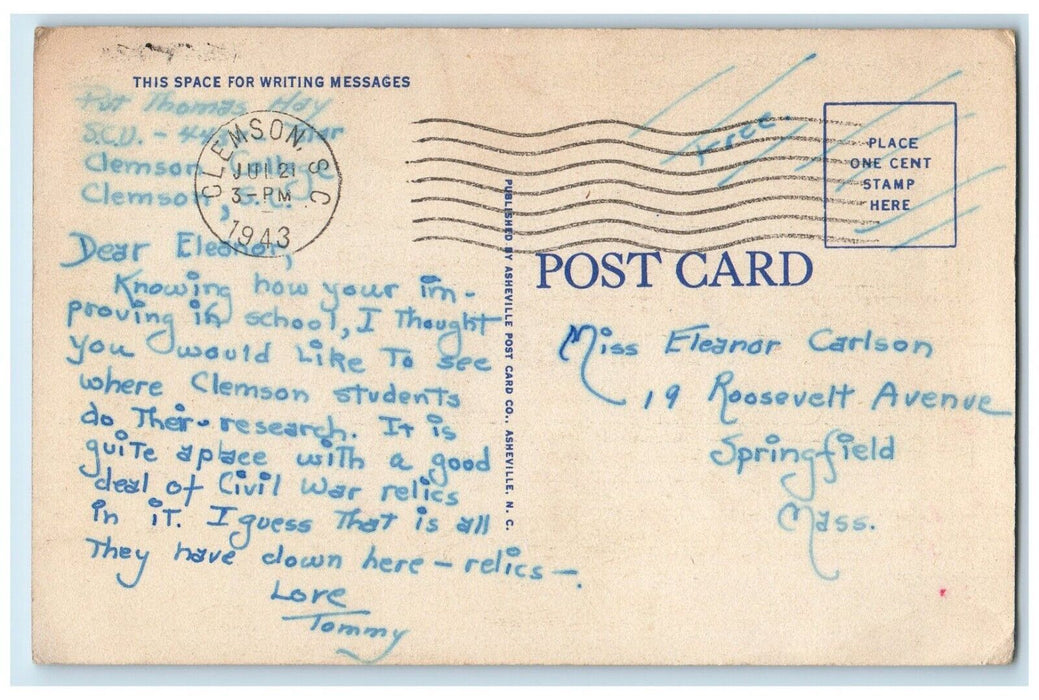 THIS SPACE FOR WRITING MESSAGES
Pvt Thomas Hay
S.C.U. -
Clemson College
Clemson, S.C.
CLEMSON, S.C.
JUL 21
3-PM
1943
Free.
PLACE
ONE CENT
STAMP
HERE
Dear Eleanor,
Knowing how your im-
proving in school, I thought
you would like to see
where Clemson students
do Their research. It is
quite a place with a good
deal of Civil War relics
in it. I guess that is all
they have down here - relics -.
Love
Tommy
PUBLISHED BY ASHEVILLE POST CARD CO., ASHEVILLE, N. C.
POST CARD
Miss Eleanor Carlson
19 Roosevelt Avenue
Springfield
Mass.